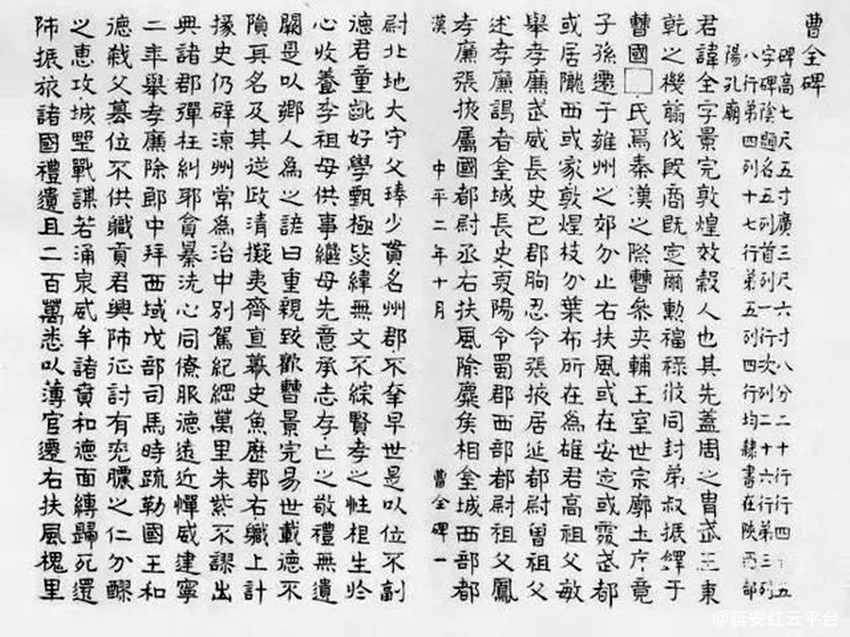 曹全碑
碑高七尺五寸廣三尺六寸八分二十行行四十五
字碑陰題名五列首列一行次列二十六行第三列
八行第四列十七行第五列四行均隸書在陝西郃
陽孔廟
君諱全字景完敦煌效穀人也其先蓋周之胄武王秉
乾之機翦伐殷商既定爾勳福祿攸同封弟叔振鐸于
曹國□氏焉秦漢之際曹參夾輔王室世宗廓土斥竟
子孫遷于雍州之郊分止右扶風或在安定或處武都
或居隴西或家敦煌枝分葉布所在為雄君高祖父敏
舉孝廉武威長史巴郡朐忍令張掖居延都尉曾祖父
述孝廉謁者金城長史夏陽令蜀郡西部都尉祖父鳳
孝廉張掖屬國都尉丞右扶風隃麋侯相金城西部都
漢 中平二年十月 曹全碑一
尉北地大守父琫少貫名州郡不幸早世是以位不副
德君童齔好學甄極毖緯無文不綜賢孝之性根生於
心收養季祖母供事繼母先意承志存亡之敬禮無遺
闕是以鄉人為之諺曰重親致歡曹景完易世載德不
隕其名及其從政清擬夷齊直慕史魚歷郡右職上計
掾史仍辟涼州常為治中別駕紀綱萬里朱紫不謬出
典諸郡彈枉糾邪貪暴洗心同僚服德遠近憚威建寧
二年舉孝廉除郎中拜西域戊部司馬時疏勒國王和
德弒父篡位不供職貢君興師征討有兖膿之仁分醪
之惠攻城野戰謀若涌泉威牟諸賁和德面縛歸死還
師振旅諸國禮遺且二百萬悉以薄官遷右扶風槐里
@延安红云平台